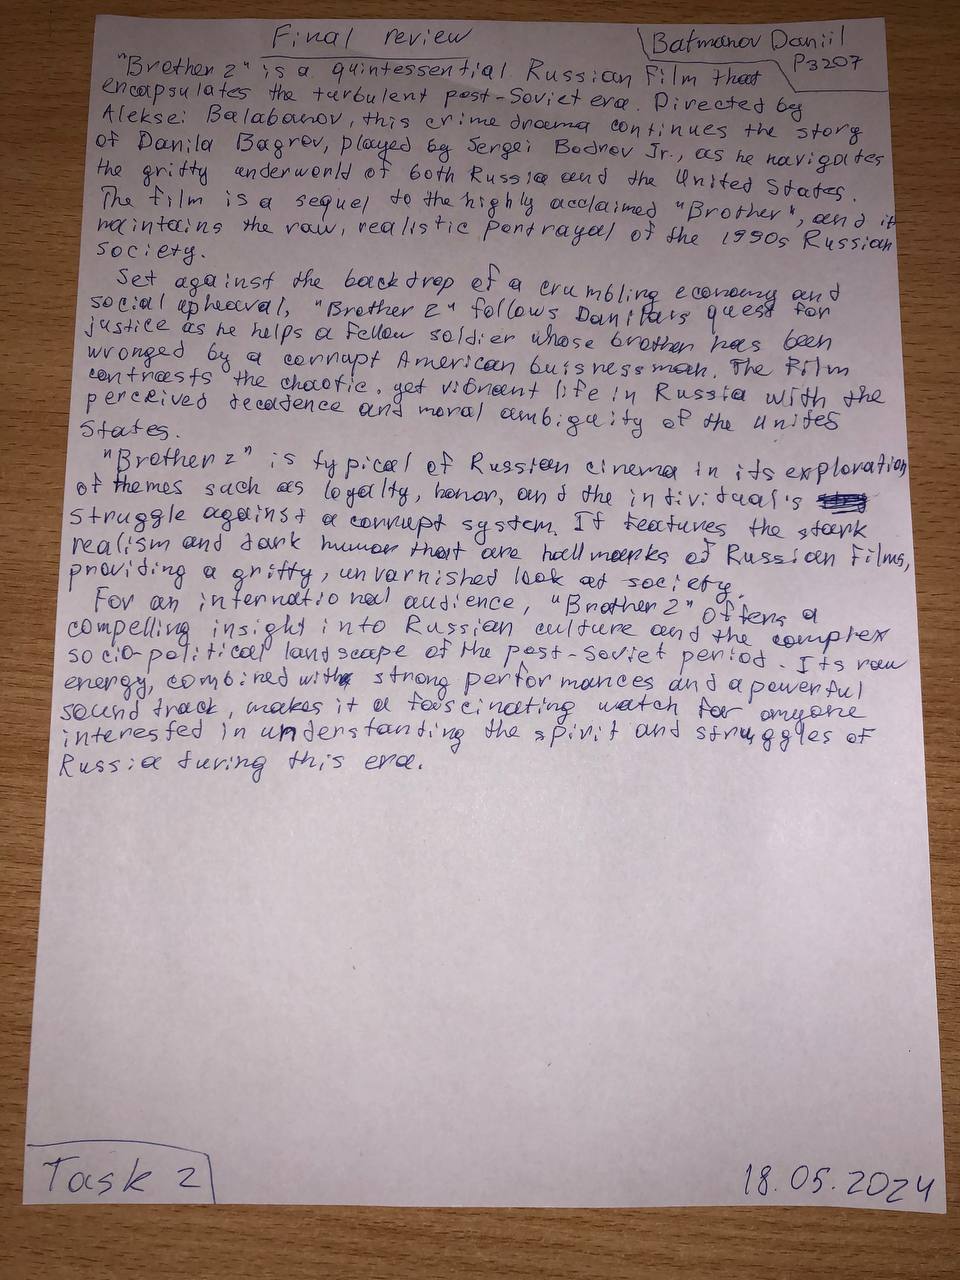 Final review
Batmanov Daniil
P3207
"Brother 2" is a quintessential Russian Film that
encapsulates the turbulent post-Soviet era. Directed by
Aleksei Balabanov, this crime drama continues the story
of Danila Bagrov, played by Sergei Bodrov Jr., as he navigates
the gritty underworld of both Russia and the United States.
The film is a sequel to the highly acclaimed "Brother", and it
maintains the raw, realistic portrayal of the 1990s Russian
society.
Set against the backdrop of a crumbling economy and
social upheaval, "Brother 2" follows Danila's quest for
justice as he helps a fellow soldier whose brother has been
wronged by a corrupt American buisnessman. The Film
contrasts the chaotic, yet vibrant life in Russia with the
perceived decadence and moral ambiguity of the Unites
States.
"Brother 2" is typical of Russian cinema in its exploration
of themes such as loyalty, honor, and the individual's
struggle against a corrupt system. It features the stark
realism and dark humor that are hallmarks of Russian Films,
providing a gritty, unvarnished look at society.
For an international audience, "Brother 2" offers a
compelling insight into Russian culture and the complex
socio-political landscape of the post-Soviet period. Its raw
energy, combined with strong performances and a powerful
soundtrack, makes it a fascinating watch for anyone
interested in understanding the spirit and struggles of
Russia during this era.
Task 2
18.05.2024